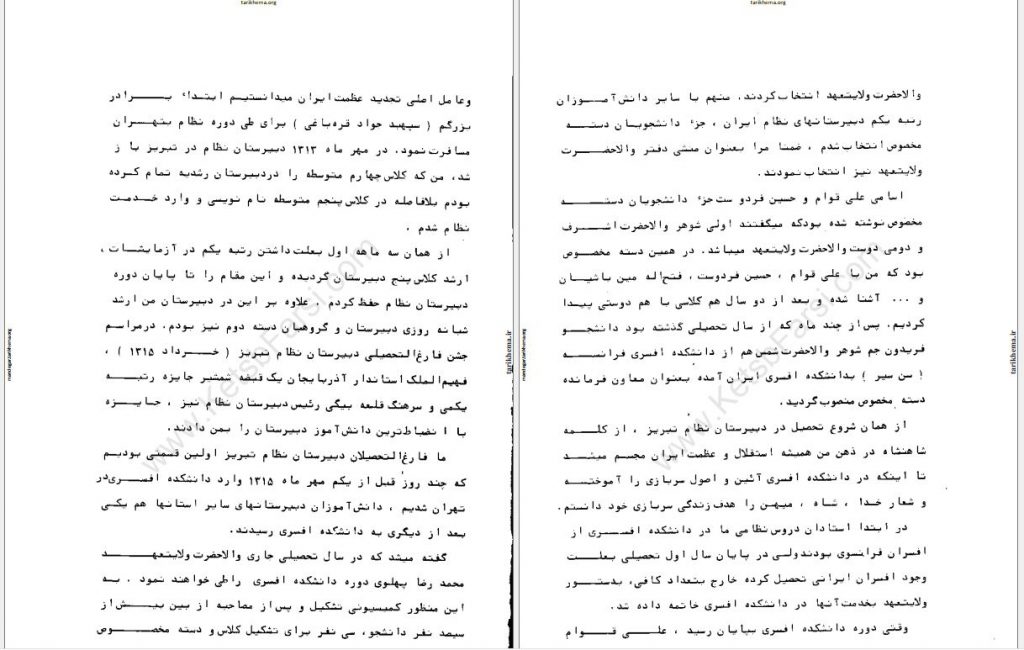 tarikhema.org
وعامل اصلی تجدید عظمت ایران میدانستیم ابتداء برادر
بزرگم ( سپهبد جواد قره‌باغی ) برای طی دوره نظام بتهران
مسافرت نمود. در مهر ماه ۱۳۱۳ دبیرستان نظام در تبریز با ز
شد، من که کلاس چهارم متوسطه را دردبیرستان رشدیه تمام کرده
بودم بلافاصله در کلاس پنجم متوسطه نام نویسی و وارد خدمت
نظام شدم .
از همان سه ماهه اول بعلت داشتن رتبه یکم در آزمایشات ،
ارشد کلاس پنج دبیرستان گردیده و این مقام را تا پایان دوره
دبیرستان نظام حفظ کردم . علاوه بر این در دبیرستان من ارشد
شبانه روزی دبیرستان و گروهبان دسته دوم نیز بودم. درمراسم
جشن فارغ‌التحصیلی دبیرستان نظام تبریز ( خرداد ۱۳۱۵ ) ،
فهیم‌الملک استاندار آذربایجان یک قبضه شمشیر جایزه رتبه
یکمی و سرهنگ قلعه بیگی رئیس دبیرستان نظام نیز ، جایزه
با انضباط‌ترین دانش‌آموز دبیرستان را بمن دادند.
ما فارغ‌التحصیلان دبیرستان نظام تبریز اولین قسمتی بودیم
که چند روز قبل از یکم مهر ماه ۱۳۱۵ وارد دانشکده افسری در
تهران شدیم ، دانش‌آموزان دبیرستانهای سایر استانها هم یکی
بعد از دیگری به دانشکده افسری رسیدند.
گفته میشد که در سال تحصیلی جاری والاحضرت ولایتعهد
محمد رضا پهلوی دوره دانشکده افسری راطی خواهند نمود . به
این منظور کمیسیونی تشکیل و پس‌از مصاحبه از بین بیش‌از
سیصد نفر دانشجو، سی نفر برای تشکیل کلاس و دسته مخصوص
www.KetabFarsi.com
mandegar.tarikhema.org
tarikhema.ir
tarikhema.org
والاحضرت ولایتعهد انتخاب کردند. منهم با سایر دانش‌آموزان
رتبه یکم دبیرستانهای نظام ایران ، جزء دانشجویان دسته
مخصوص انتخاب شدم ، ضمنا مرا بعنوان منشی دفتر والاحضرت
ولایتعهد نیز انتخاب نمودند.
اسامی علی قوام و حسین فردو ست جزء دانشجویان دسته
مخصوص نوشته شده بودکه میگفتند اولی شوهر والاحضرت اشرف
و دومی دوست والاحضرت ولایتعهد میباشد. در همین دسته مخصوص
بود که من با علی قوام ، حسین فردوست ، فتح‌اله مین باشیان
و ... آشنا شده و بعد از دو سال هم کلاسی با هم دوستی پیدا
کردیم. پس‌از چند ماه که از سال تحصیلی گذشته بود دانشجو
فریدون جم شوهر والاحضرت شمس هم از دانشکده افسری فرانسه
( سن سیر ) بدانشکده افسری ایران آمده بعنوان معاون فرمانده
دسته مخصوص منصوب گردید .
از همان شروع تحصیل در دبیرستان نظام تبریز ، از کلمه
شاهنشاه در ذهن من همیشه استقلال و عظمت ایران مجسم میشد
تا اینکه در دانشکده افسری آئین و اصول سربازی را آموخته
و شعار خدا ، شاه ، میهن را هدف زندگی سربازی خود دانستم .
در ابتدا استادان دروس نظامی ما در دانشکده افسری از
افسران فرانسوی بودندولی در پایان سال اول تحصیلی بعلت
وجود افسران ایرانی تحصیل کرده خارج بتعداد کافی، بدستور
ولایتعهد بخدمت آنها در دانشکده افسری خاتمه داده شد.
وقتی دوره دانشکده افسری بپایان رسید ، علی قوام
www.KetabFarsi.com
mandegar.tarikhema.org
tarikhema.ir